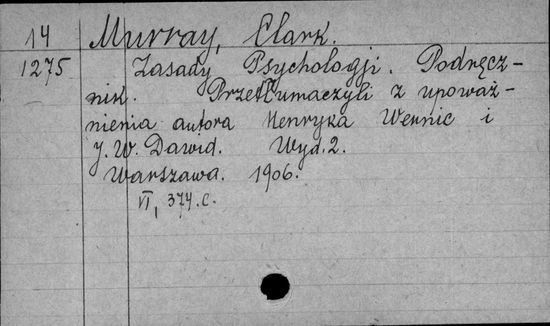 14 Murray, Clark.
1275 Zasady Psychologji. Podręcz-
nik. Przetłumaczyli z upoważ-
nienia autora Henryka Wernic i
J. W. Dawid. Wyd. 2.
Warszawa. 1906.
VI, 374.c.